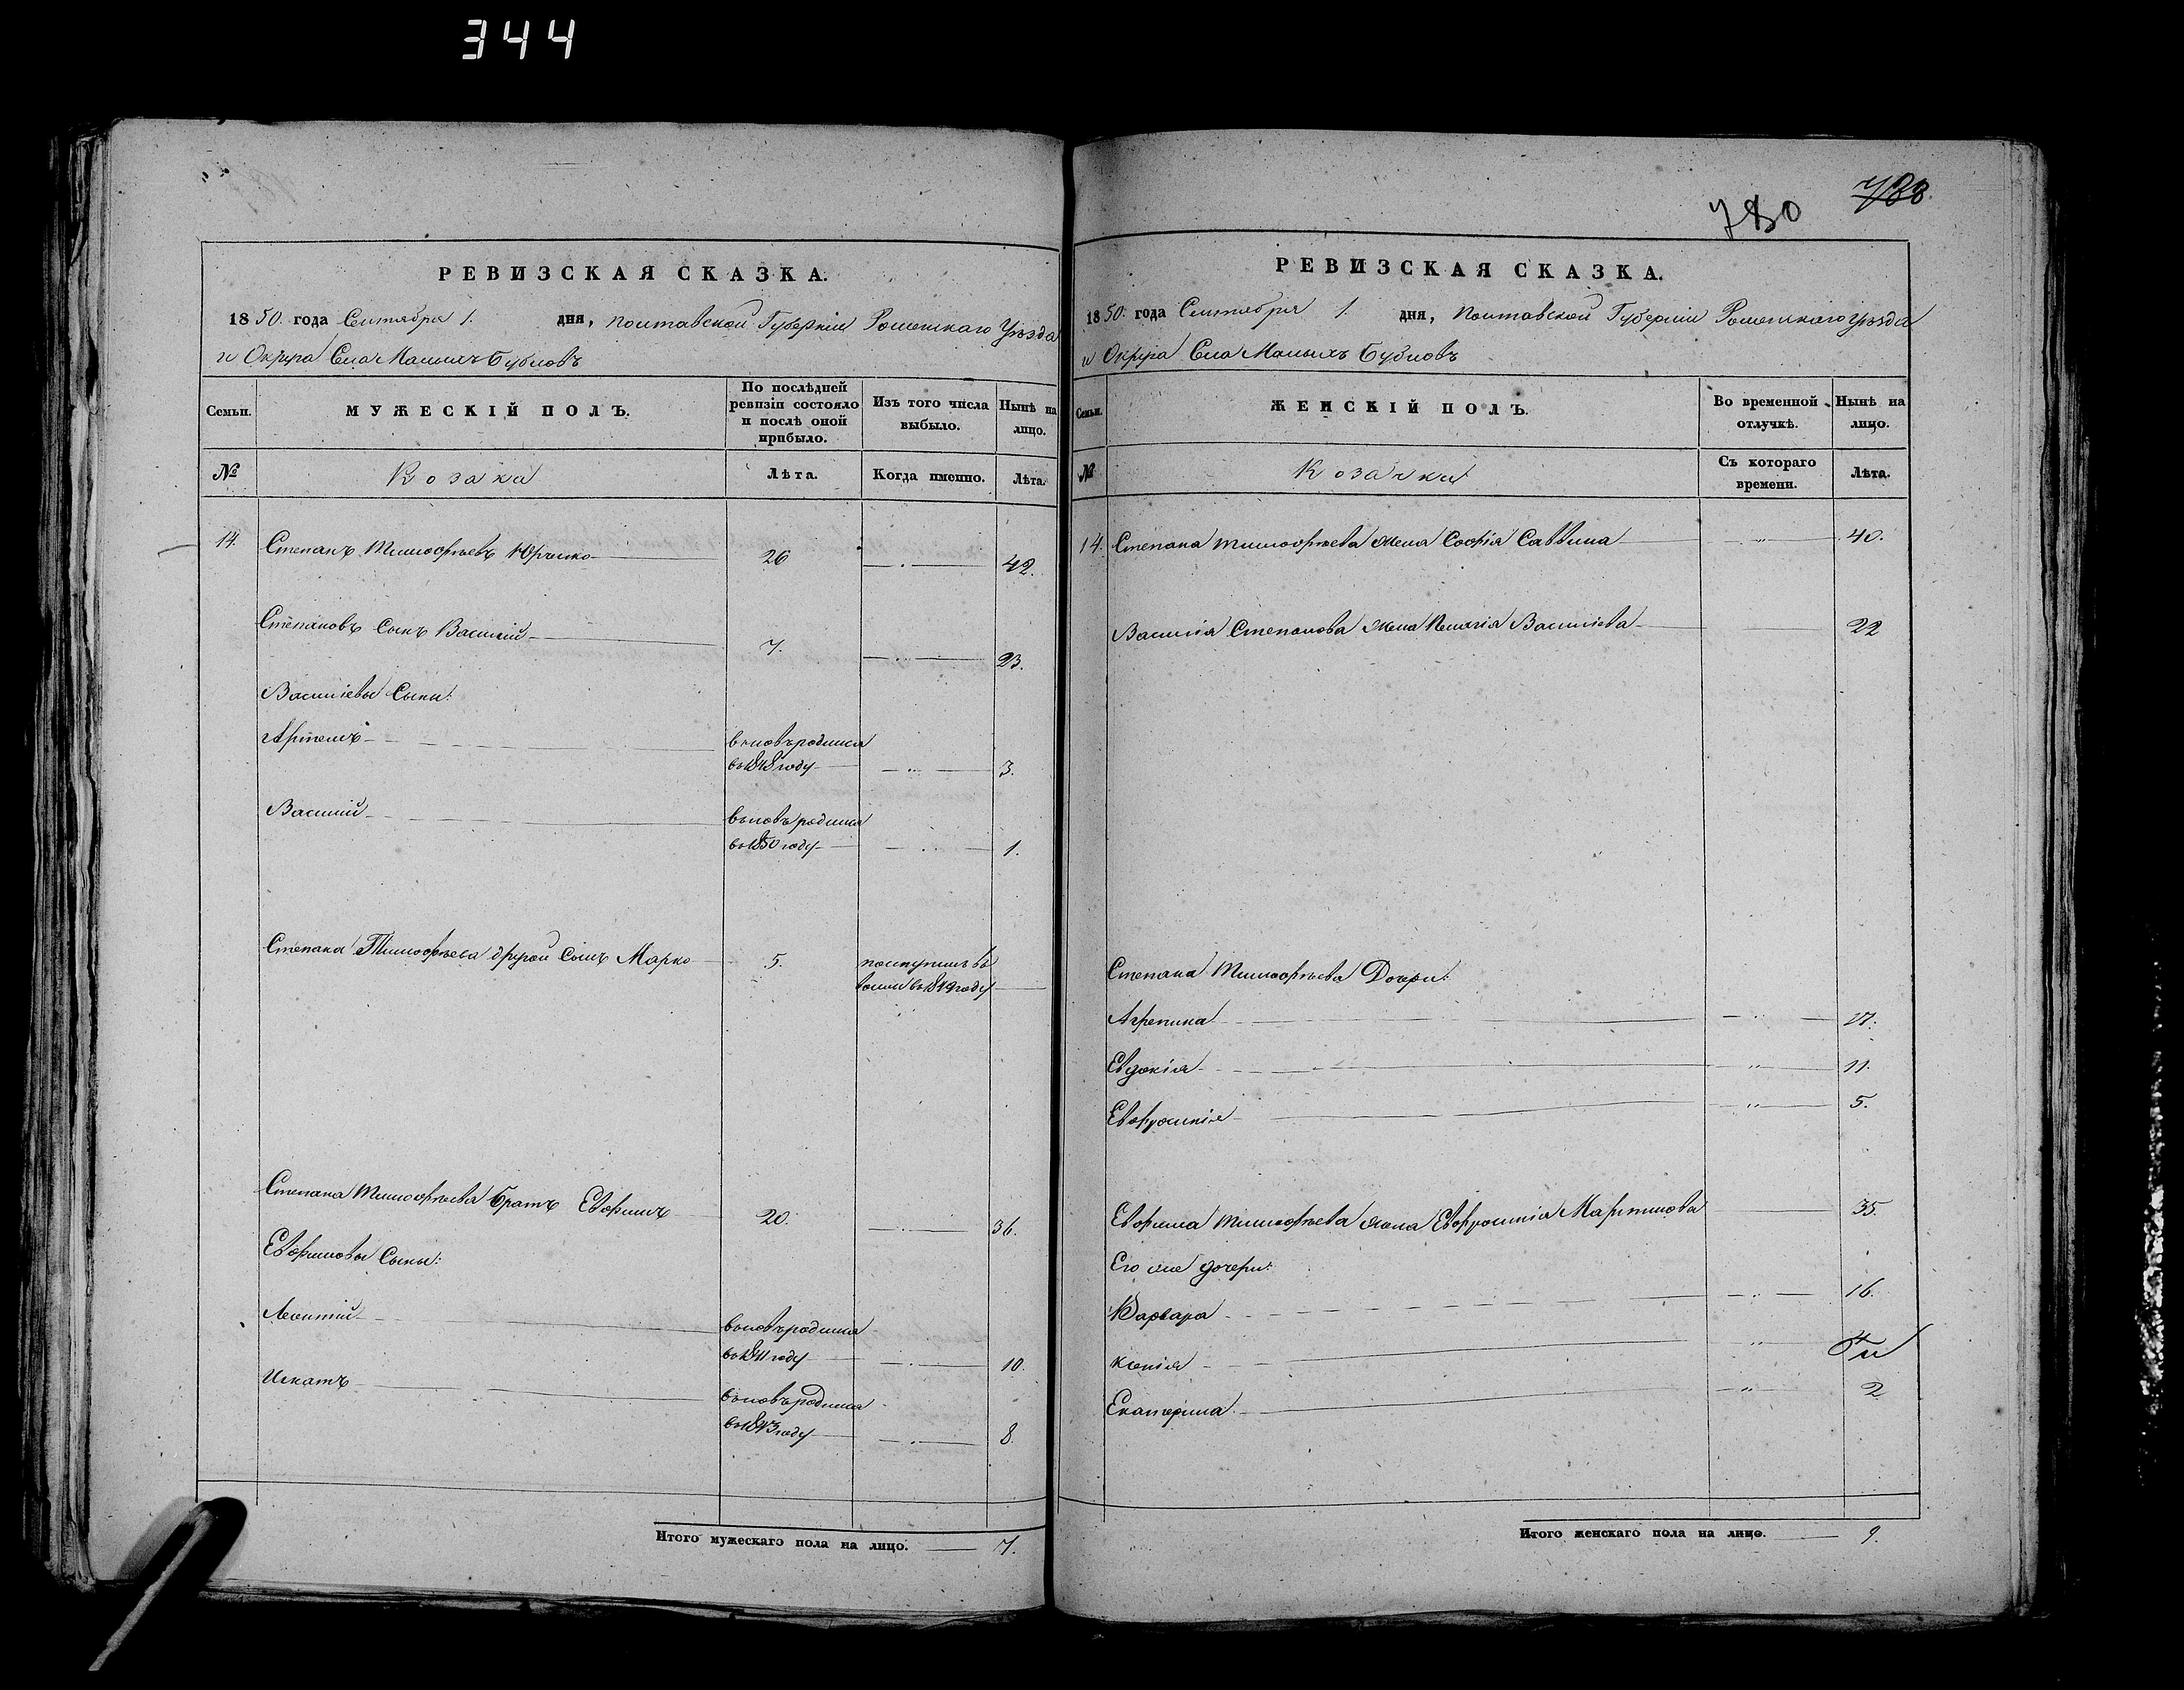 344
780
788.
РЕВИЗСКАЯ СКАЗКА.
1850. года Сентября 1. дня, Полтавской Губерніи Роменскаго Уѣзда
и Округа Села Малыхъ Бубновъ
Семьи.
МУЖЕСКІЙ ПОЛЪ.
По послѣдней ревизіи состояло и послѣ оной прибыло.
Изъ того числа выбыло.
Нынѣ на лицо.
№
Козаки
Лѣта.
Когда именно.
Лѣта.
14. Степанъ Тимофѣевъ 26 42.
Степановъ Сынъ Василій 7. 23.
Василіевы Сыны:
Артемъ вновь родился
въ 1848 году 3.
Василій вновь родился
въ 1850 году 1.
Степана Тимофѣева другой Сынъ Марко 5. поступилъ въ
въ 1849 году
Степана Тимофѣева братъ Евфимъ 20. 36.
Евфимовы Сыны:
Леонтій вновь родился
въ 1841 году 10.
Игнатъ вновь родился
въ 1843 году 8.
Итого мужескаго пола на лицо. 7.
РЕВИЗСКАЯ СКАЗКА.
1850. года Сентября 1. дня, Полтавской Губерніи Роменскаго Уѣзда
и Округа Села Малыхъ Бубновъ
Семьи.
ЖЕНСКІЙ ПОЛЪ.
Во временной отлучкѣ.
Нынѣ на лицо.
№
Козачки
Съ котораго времени.
Лѣта.
14. Степана Тимофѣева жена Софія Саввина 40.
Василія Степанова жена Пелагія Василіева 22
Степана Тимофѣева Дочери:
Агрепина 17.
Евдокія 11.
Евфросинія 5.
Евфима Тимофѣева жена Евфросинія Мартинова 35.
Его же дочери:
Варвара 16.
Ксенія
Екатерина 2
Итого женскаго пола на лицо. 9.